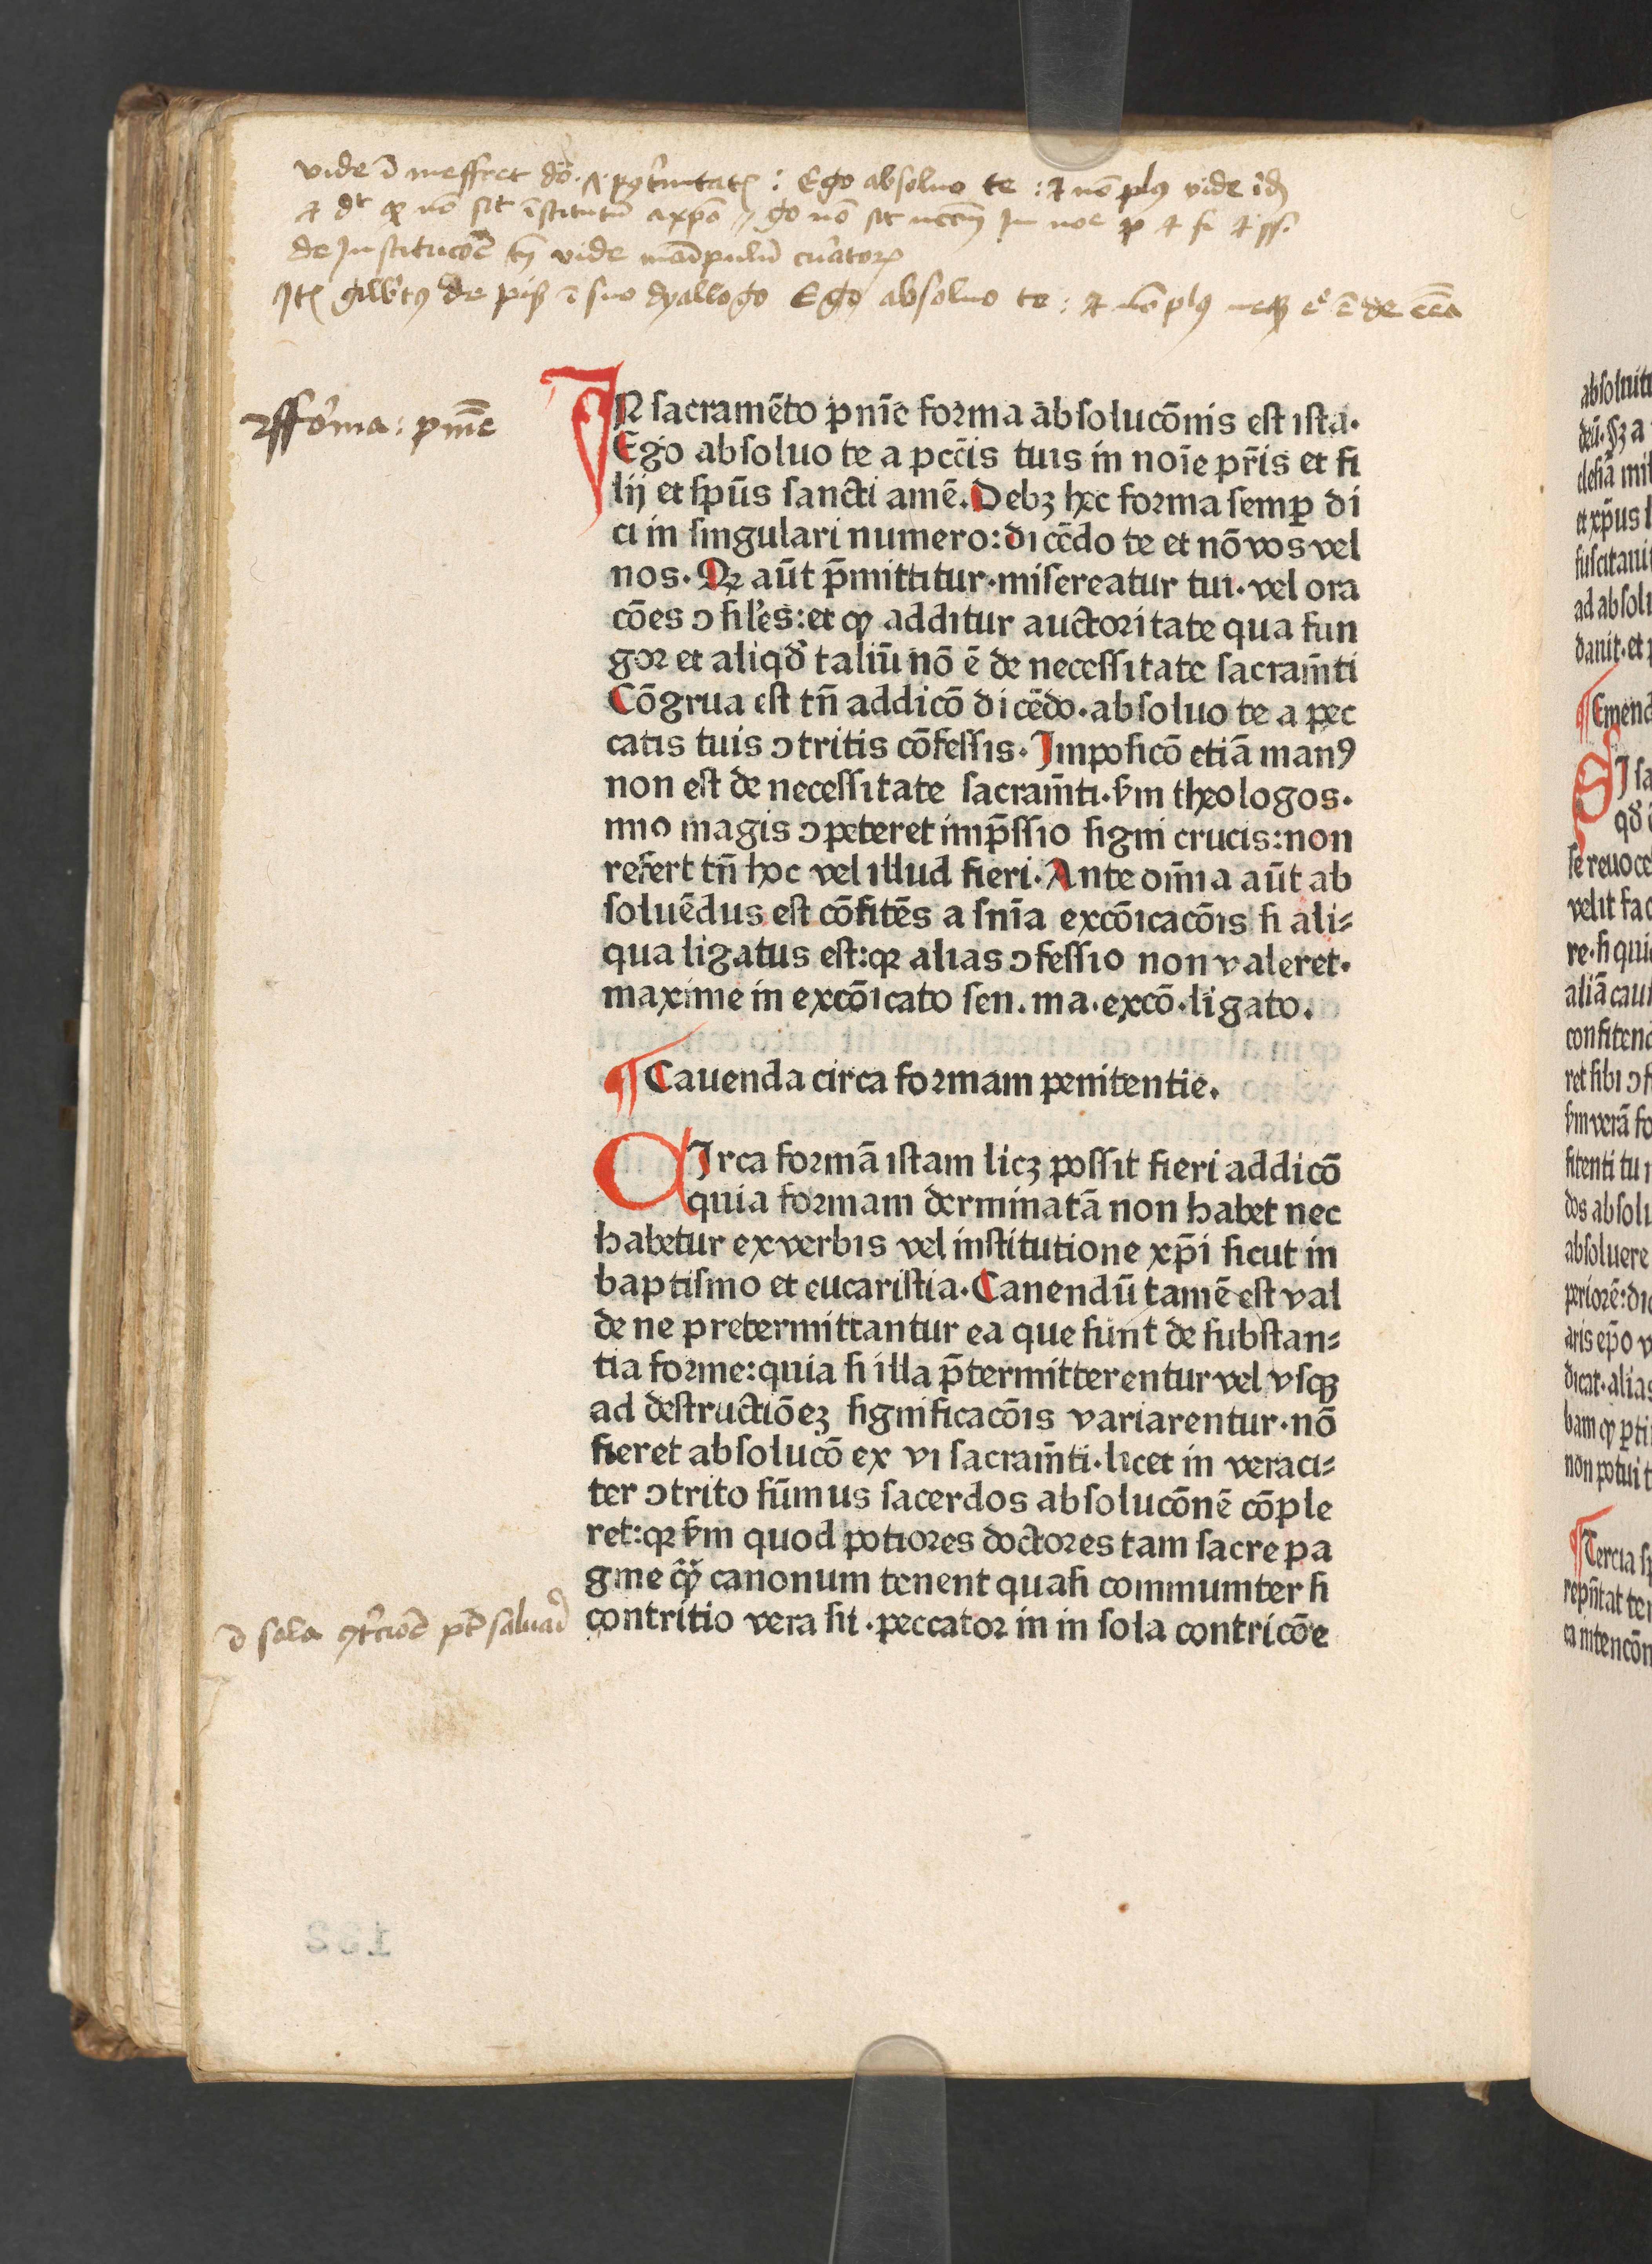 vide ī meffret dō. Ego absoluo te : et nō plus vide
et dr̄ nō sit īstitutū a xp̄o nō sit in noē p et fi et ss.
de Institucōē vide curatorꝝ
de ī suo dyallogo Ego absoluo te : et nō plus
forma : pn̄īe
IN sacramēto pn̄īe forma absolucōnis est ista·
Ego absoluo te a pcc̄is tuis in noīe pr̄is et fi
lij et sp̄us sancti amē. Debꝫ hec forma semꝑ di
ci in singulari numero: dicēdo te et nō vos vel
nos· Qꝛ aūt p̄mittitur· misereatur tui· vel ora
cōes ↄsiles: et ꝙ additur auctoritate qua fun
gor et aliqd̓ taliū nō ē de necessitate sacram̄ti
Cōgrua est tn̄ addicō dicēdo· absoluo te a pec
catis tuis ↄtritis cōfessis· Imposicō etiā manꝰ
non est de necessitate sacram̄ti· ẜm theologos·
mio magis ↄpeteret imp̄ssio signi crucis: non
refert tn̄ hoc vel illud fieri· Ante om̄ia aūt ab
soluēdus est cōfitēs a sn̄ia excōicacōis si ali⸗
qua ligatus est: qꝛ alias ↄfessio non valeret·
maxime in excōicato sen. ma· excō· ligato.
¶ Cauenda circa formam penitentie.
CIrca formā istam licꝫ possit fieri addicō
quia formam derminatā non habet nec
habetur ex verbis vel institutione xp̄i sicut in
baptismo et eucaristia· Canendū tamē est val
de ne pretermittantur ea que sunt de substan⸗
tia forme: quia si illa p̄termitterentur vel vsqꝫ
ad destructiōeꝫ significacōis variarentur· nō
fieret absolucō ex vi sacram̄ti· licet in veraci⸗
ter ↄtrito sūmus sacerdos absolucōnē cōple
ret: qꝛ ẜm quod potiores doctores tam sacre pa
gine ꝙ̄ canonum tenent quasi communiter si
contritio vera sit· peccator in in sola contricōe
sola ꝯtricōē pt̄ saluari
132
absoluit
deū· sꝫ a
clesiā mi
et xp̄us l
suscitaui
ad absol
danit· et
¶ Emend
SI sa
qd̓
se reuoce
velit fac
re· si qui
aliā cau
confiten
ret sibi ↄf
ẜm verā fo
fitenti tu
dos absol
absoluere
periorē: di
aris ep̄o v
dicat· alias
bam ꝙ ꝑti
non potuit
¶ Tercia s
repn̄tat te
ca intencōn